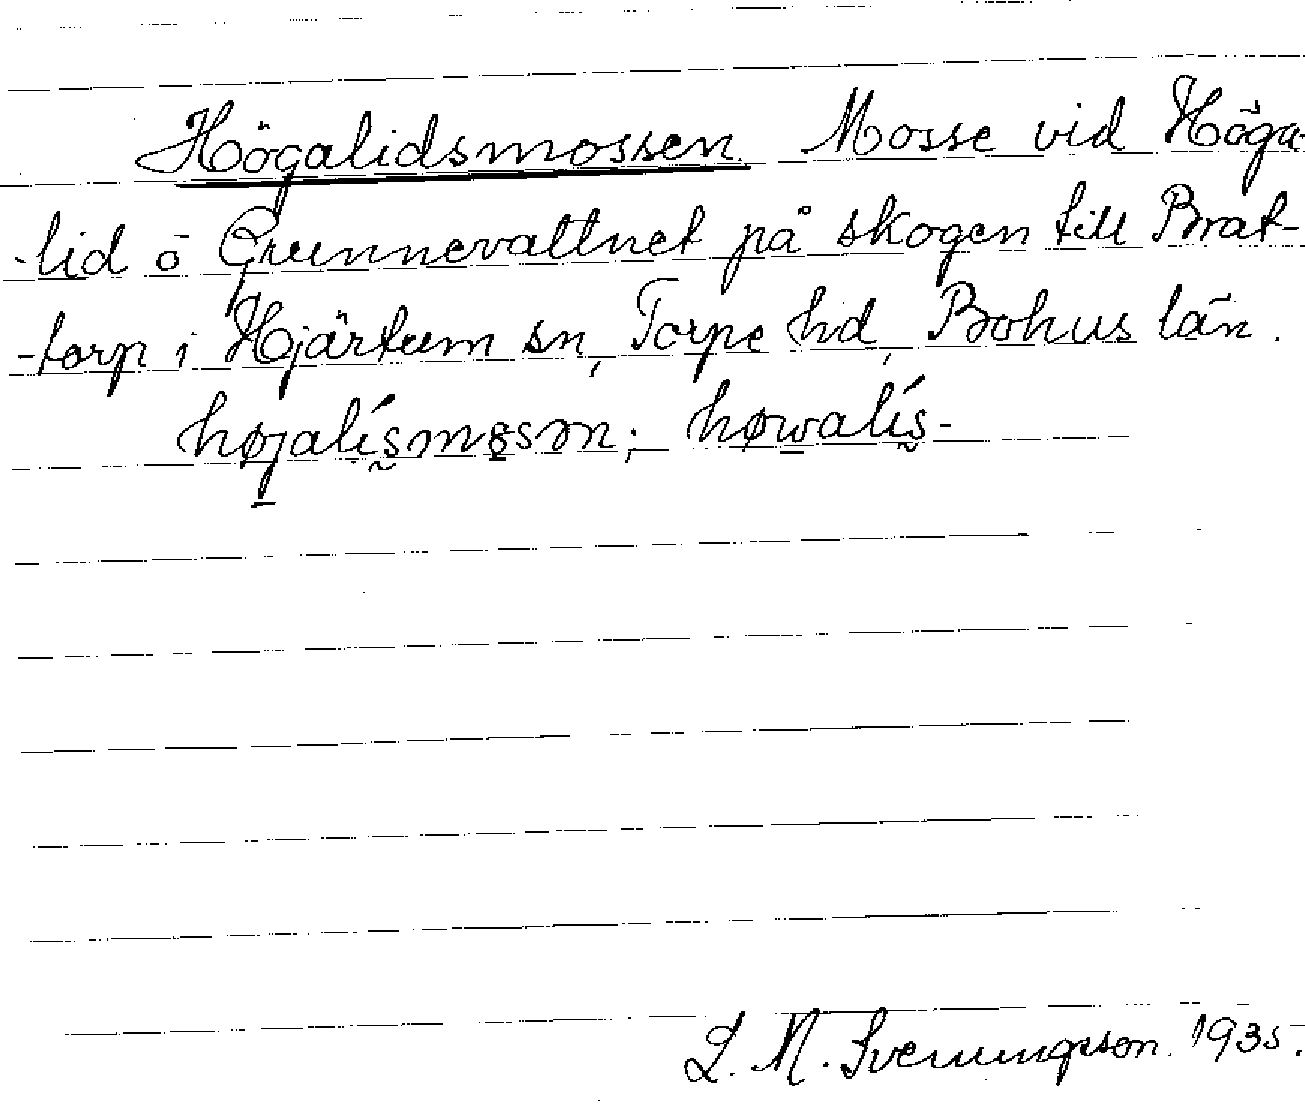 Högalidsmossen. Mosse vid Höga-
-lid ö Grunnevattnet på skogen till Brat-
-torp i Hjärtum sn, Torpe hd, Bohus län.
højalís̰mo̱sən; høwalís̰-
L. M. Svenungsson. 1935.